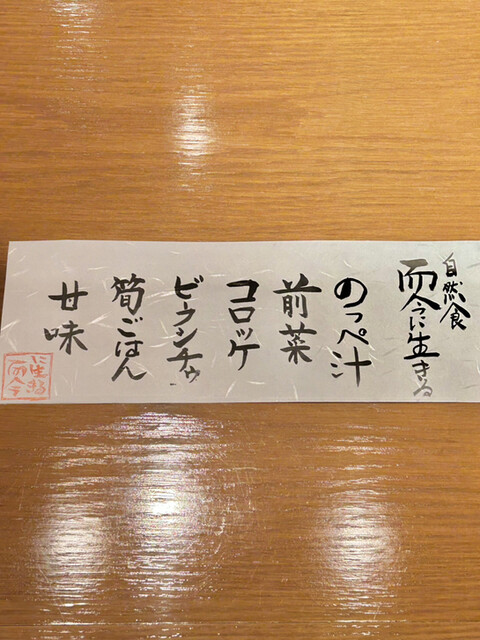 自然食
而今に生きる
のっぺ汁
前菜
コロッケ
ビーフンチャ
筍ごはん
甘味
に生きる
而今